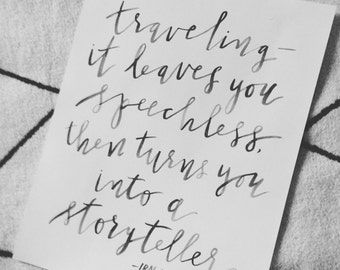 traveling—
it leaves you
speechless,
then turns you
into a
storyteller